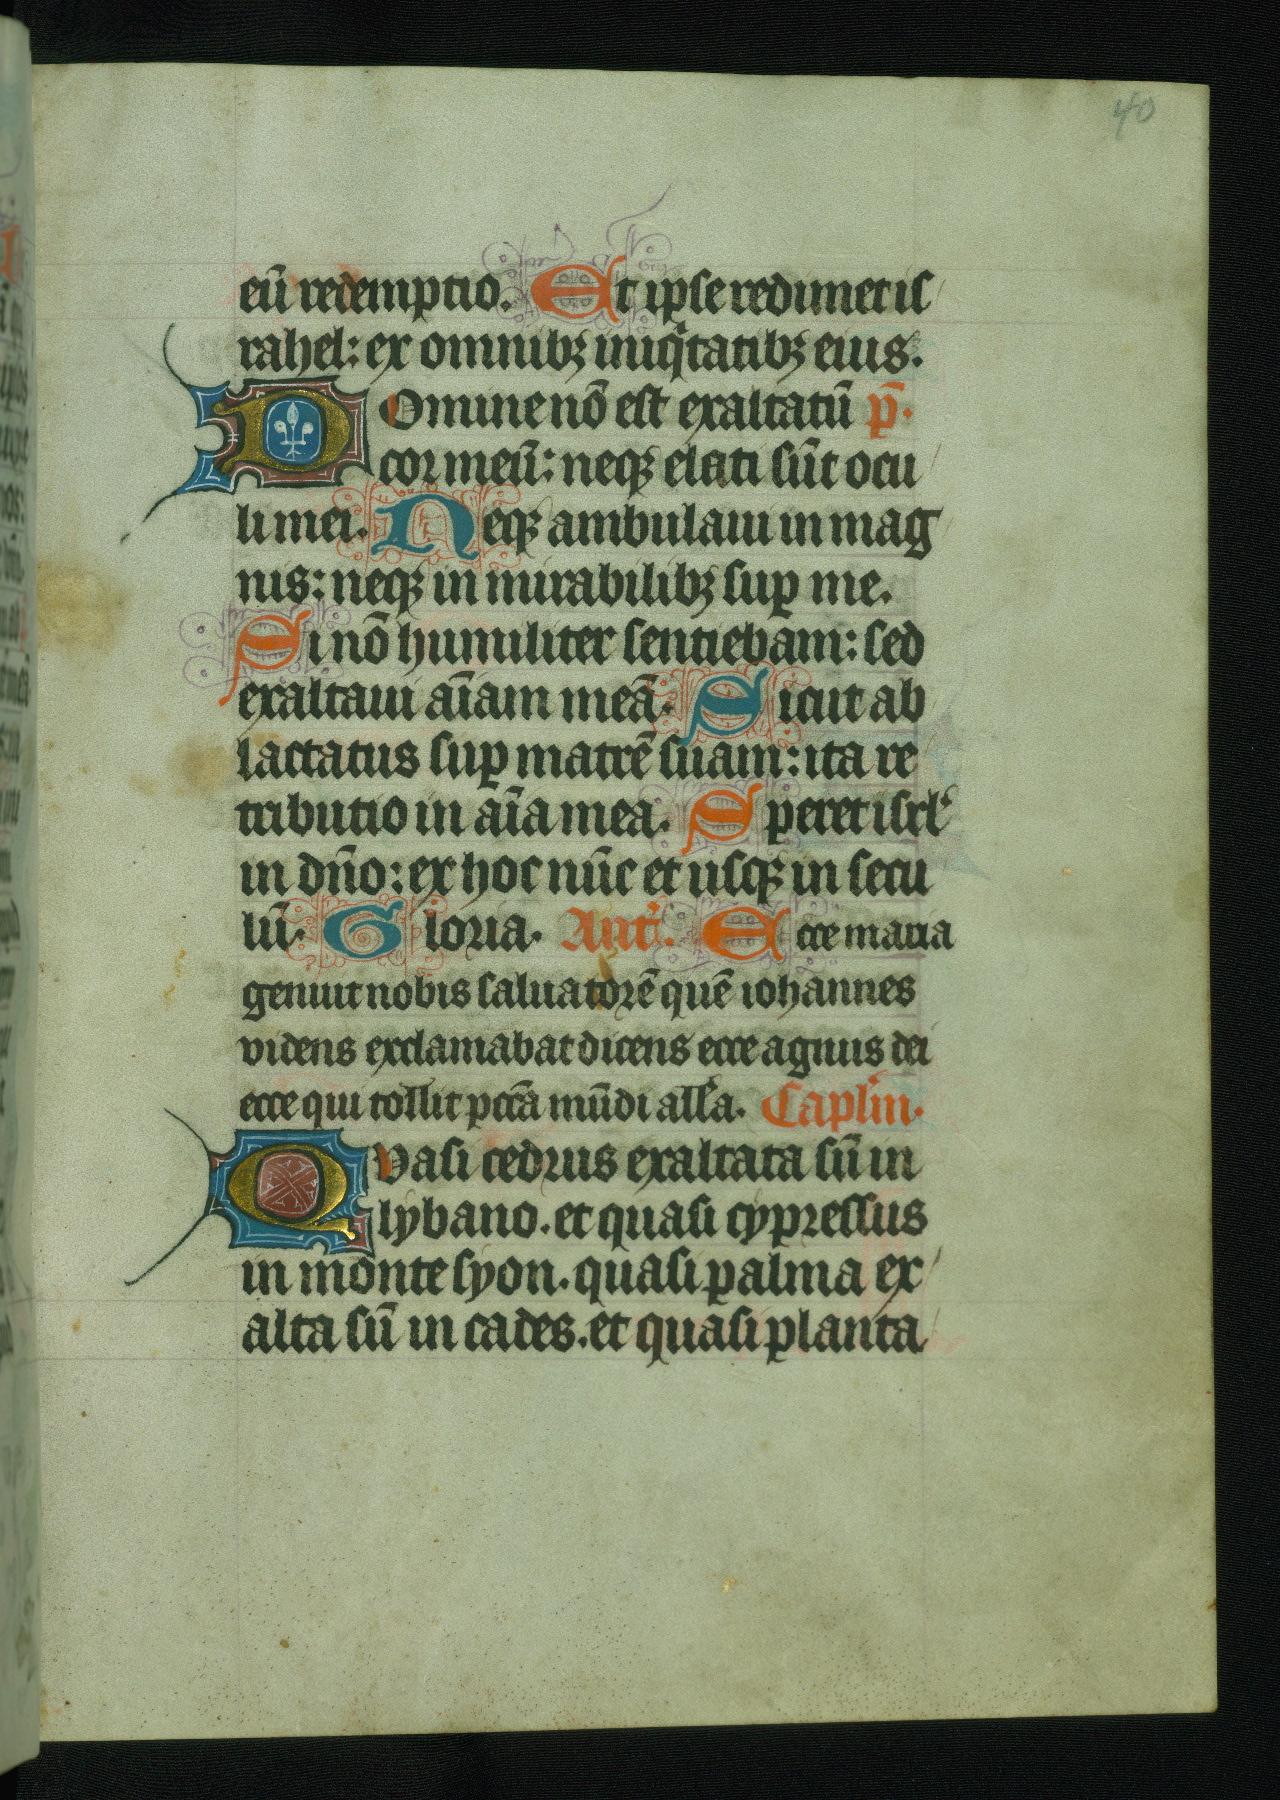 40
eū redemptio. Et ipse redimet is
rahel: ex omnibꝫ iniqͥtatibꝫ eius.
Domine nō est exaltatū p̄.
cor meū: neqꝫ elati sūt ocu
li mei. Neqꝫ ambulaui in mag
nis: neqꝫ in mirabilibꝫ suꝑ me.
Si nō humiliter sentiebam: sed
exaltaui aīam meā. Sicut ab
lactatus suꝑ matrē suam: ita re
tributio in aīa mea. Speret isrl'
in dn̄o: ex hoc nūc et usqꝫ in secu
lū. Gloria. Ant'. Ecce maria
genuit nobis saluatorē quē iohannes
videns exclamabat dicens ecce agnus dei
ecce qui tollit pctā mūdi all'a. Capl'm.
Quasi cedrus exaltata sū in
lybano. et quasi cypressus
in monte syon. quasi palma ex
alta sū in cades. et quasi planta